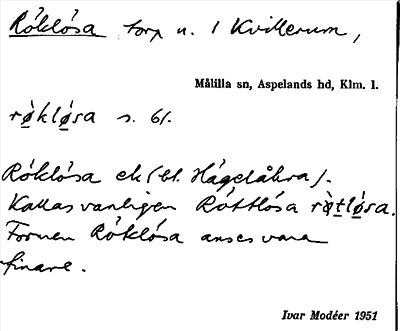 Röklösa torp u. / Kvillerum,
Målilla sn, Aspelands hd, Klm. l.
rø̀klø̀sa s. 61.
Röklösa ek (bl. Hagelåkra).
Kallas vanligen Röttlösa rø̀tlø̀sa.
Formen Röklösa anses vara
finare.
Ivar Modéer 1951